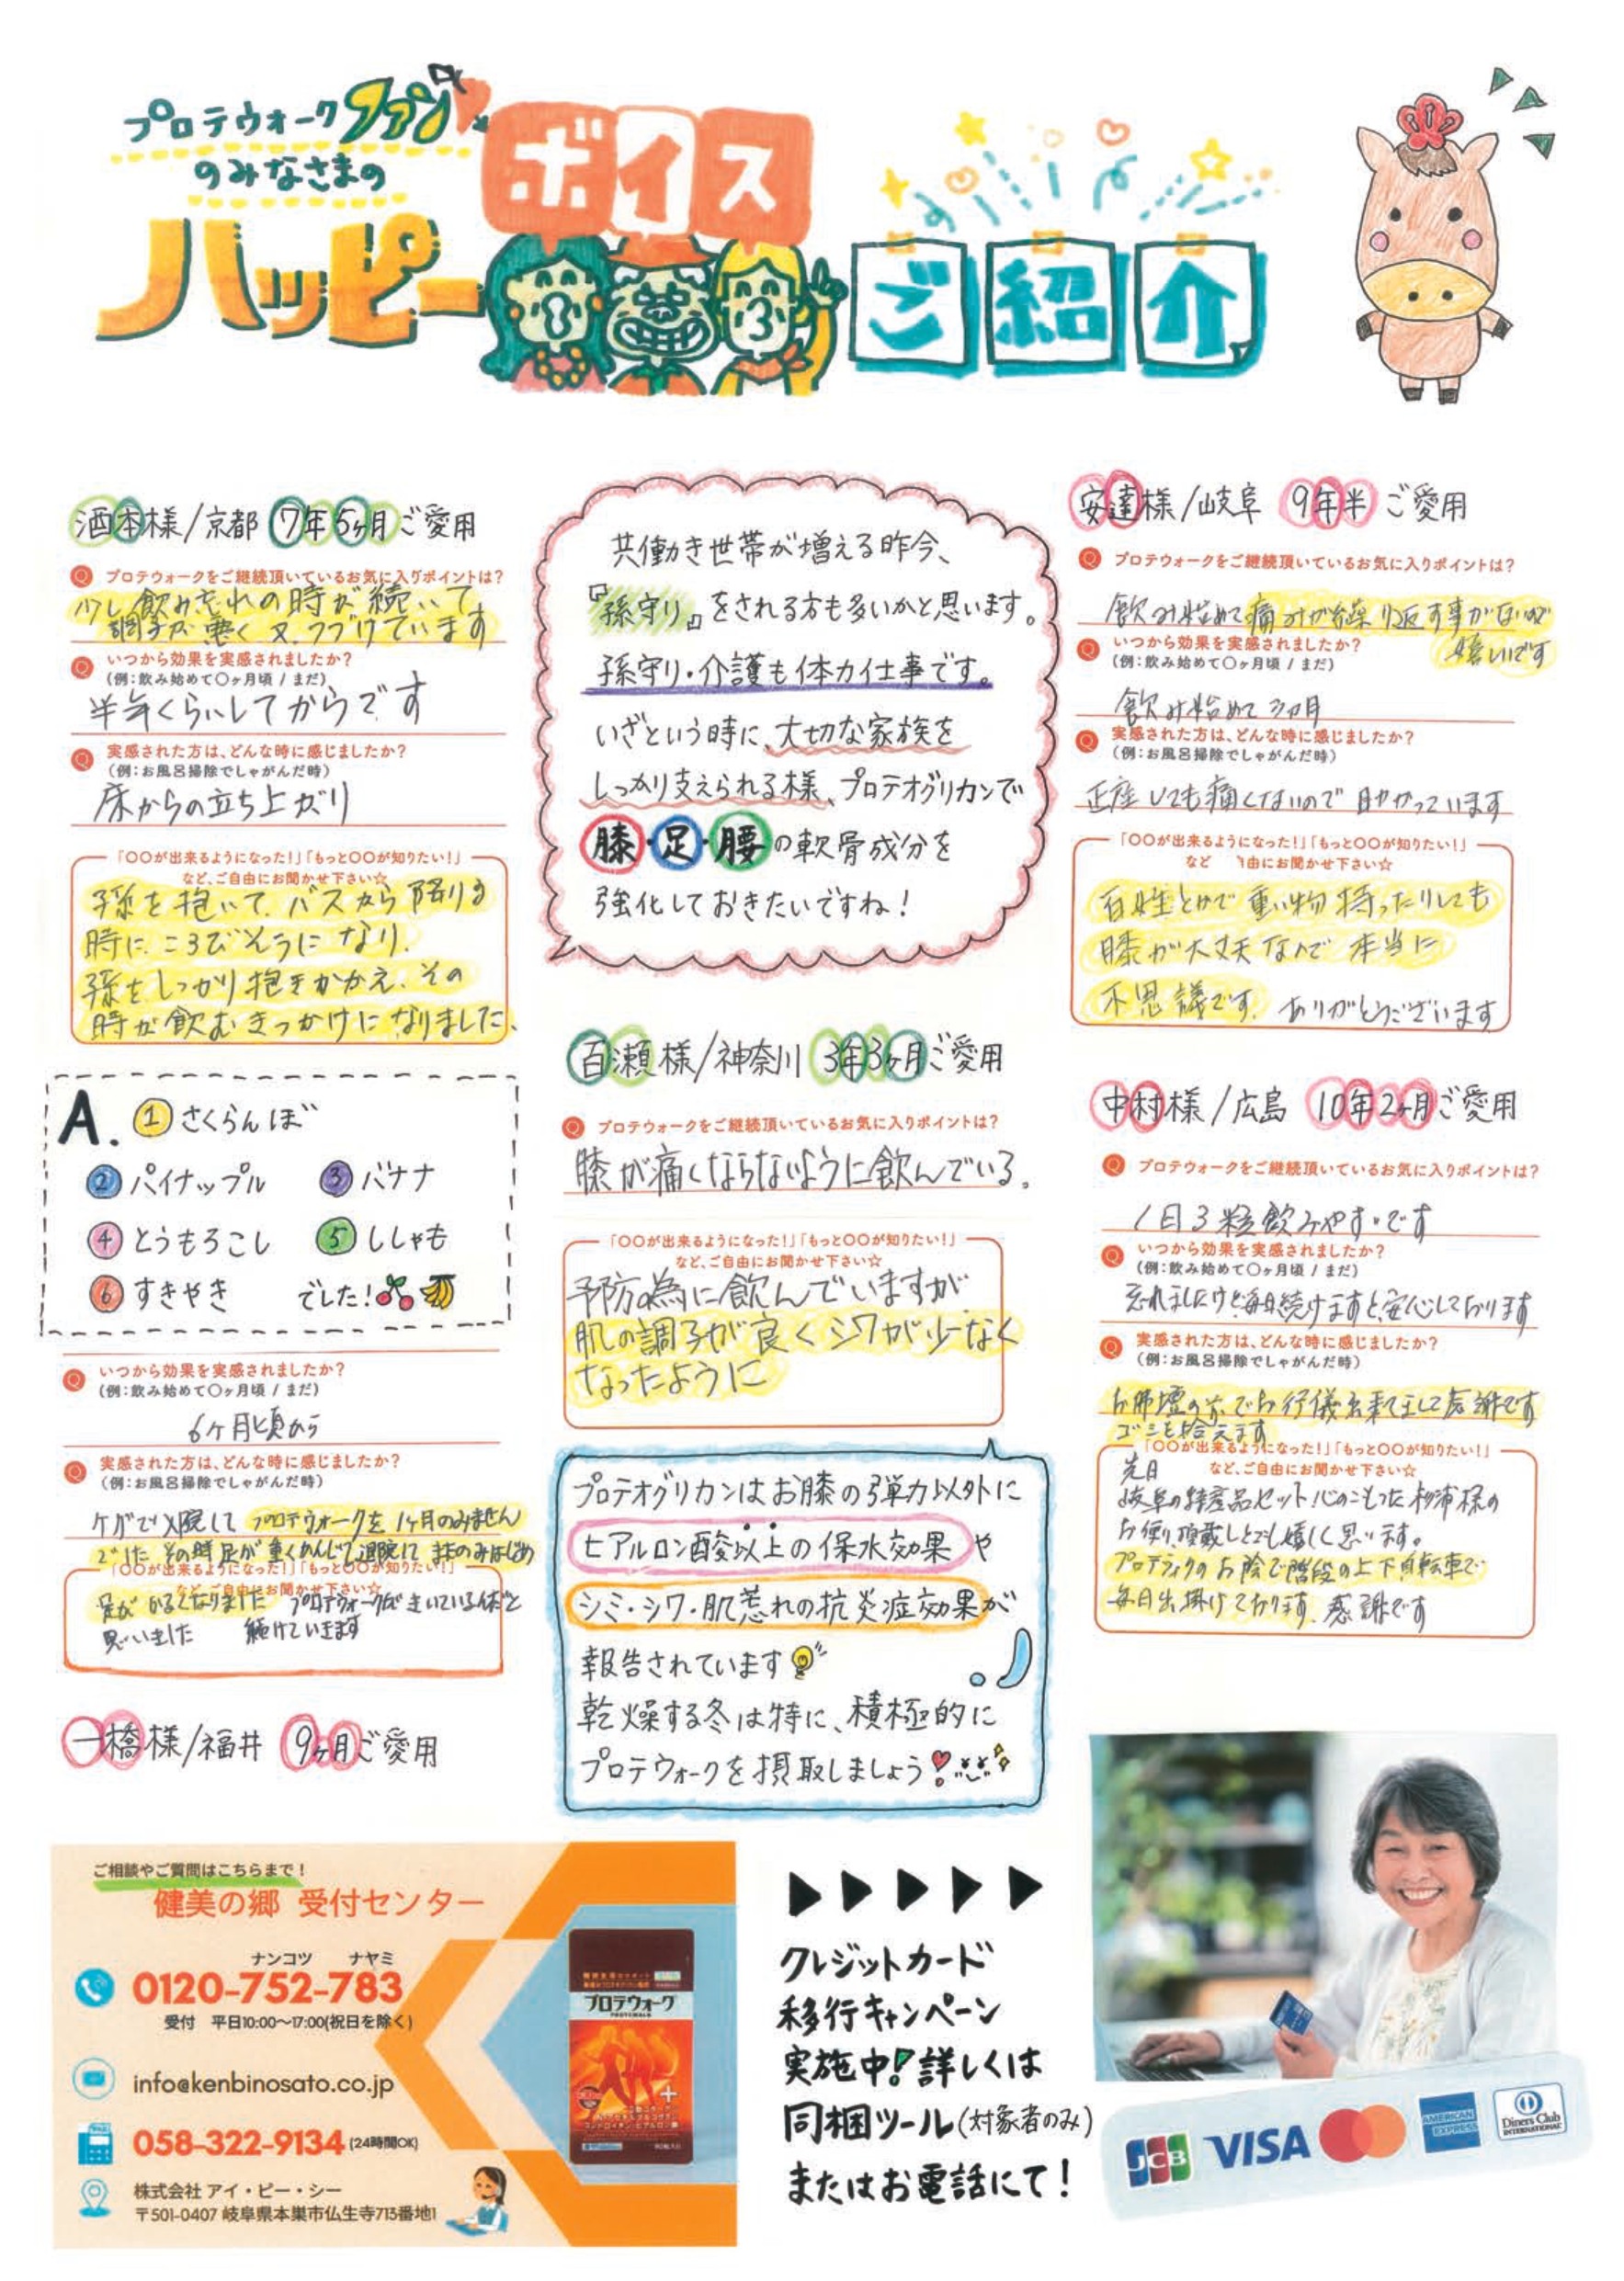 プロテウォークファン
のみなさまの
ハッピー
ボイス
ご紹介
酒本様/京都 7年5ヶ月ご愛用
Q プロテウォークをご継続頂いているお気に入りポイントは?
少し飲み忘れの時が続いて
調子が悪く又つづけています
Q いつから効果を実感されましたか?
(例:飲み始めて〇ヶ月頃 / まだ)
半年くらいしてからです
Q 実感された方は、どんな時に感じましたか?
(例:お風呂掃除でしゃがんだ時)
床からの立ち上がり
「〇〇が出来るようになった!」「もっと〇〇が知りたい!」
など、ご自由にお聞かせ下さい☆
孫を抱いて、バスから降りる
時に ころびそうに なり、
孫をしっかり抱きかかえ、その
時が飲むきっかけになりました、
A. ①さくらんぼ
②パイナップル ③バナナ
④とうもろこし ⑤ししゃも
⑥すきやき でした!
Q いつから効果を実感されましたか?
(例:飲み始めて〇ヶ月頃 / まだ)
6ヶ月頃から
Q 実感された方は、どんな時に感じましたか?
(例:お風呂掃除でしゃがんだ時)
ケガで入院して プロテウォークを1ヶ月のみません
でした その時 足が重くかんじて退院して またのみはじめ
「〇〇が出来るようになった!」「もっと〇〇が知りたい!」
など、ご自由にお聞かせ下さい☆
足が かるくなりました プロテウォークがきいている
思いました 続けていきます
一橋様/福井 9ヶ月ご愛用
共働き世帯が増える昨今、
『孫守り』をされる方も多いかと思います。
孫守り・介護も体力仕事です。
いざという時に、大切な家族を
しっかり支えられる様、プロテオグリカンで
膝・足・腰の軟骨成分を
強化しておきたいですね!
百瀬様/神奈川 3年3ヶ月ご愛用
Q プロテウォークをご継続頂いているお気に入りポイントは?
膝が痛くならないように飲んでいる。
「〇〇が出来るようになった!」「もっと〇〇が知りたい!」
など、ご自由にお聞かせ下さい☆
予防の為に飲んでいますが
肌の調子が良くシワが少なく
なったように
プロテオグリカンはお膝の弾力以外に
ヒアルロン酸以上の保水効果や
シミ・シワ・肌荒れの抗炎症効果が
報告されています
乾燥する冬は特に、積極的に
プロテウォークを摂取しましょう
安達様/岐阜 9年半ご愛用
Q プロテウォークをご継続頂いているお気に入りポイントは?
飲み始めて痛みが繰り返す事がないので
嬉しいです
Q いつから効果を実感されましたか?
(例:飲み始めて〇ヶ月頃 / まだ)
飲み始めて3ヵ月
Q 実感された方は、どんな時に感じましたか?
(例:お風呂掃除でしゃがんだ時)
正座しても痛くないので助かっています
「〇〇が出来るようになった!」「もっと〇〇が知りたい!」
など 由にお聞かせ下さい☆
百姓とかで重い物持ったりしても
膝が大丈夫なんで本当に
不思議です。ありがとうございます
中村様/広島 10年2ヶ月ご愛用
Q プロテウォークをご継続頂いているお気に入りポイントは?
1日3粒飲みやすいです
Q いつから効果を実感されましたか?
(例:飲み始めて〇ヶ月頃 / まだ)
忘れましたけど毎日続けますと安心しております
Q 実感された方は、どんな時に感じましたか?
(例:お風呂掃除でしゃがんだ時)
お佛壇の前でお行儀出来まして感謝です
ゴミも拾えます
「〇〇が出来るようになった!」「もっと〇〇が知りたい!」
など、ご自由にお聞かせ下さい☆
先日
岐阜の特産品セット心のこもった杉浦様の
お便り頂戴しとても嬉しく思います。
お陰で階段の上下自転車で
毎日出掛けております。感謝です
ご相談やご質問はこちらまで!
健美の郷 受付センター
ナンコツ ナヤミ
0120-752-783
受付 平日10:00〜17:00(祝日を除く)
info@kenbinosato.co.jp
058-322-9134 (24時間OK)
株式会社 アイ・ピー・シー
〒501-0407 岐阜県本巣市仏生寺713番地1
プロテウォーク
▶▶▶▶▶
クレジットカード
移行キャンペーン
実施中!詳しくは
同梱ツール(対象者のみ)
またはお電話にて!
JCB VISA AMERICAN EXPRESS Diners Club INTERNATIONAL